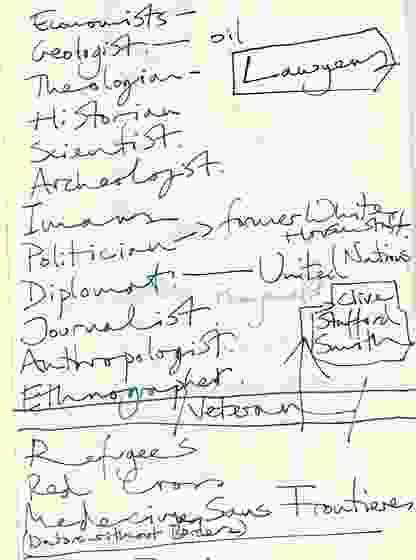 Economists –
Geologist. — oil
Lawyers
Theologian –
Historian
Scientist.
Archeologist.
Imams
Politician → former White House Staff.
Diplomat. — United Nations
Journalist.
Clive
Stafford
Smith
Anthropologist.
Ethnographer.
Veteran
Refugees
Red Cross
Medecines Sans Frontieres
(Doctors without Borders)